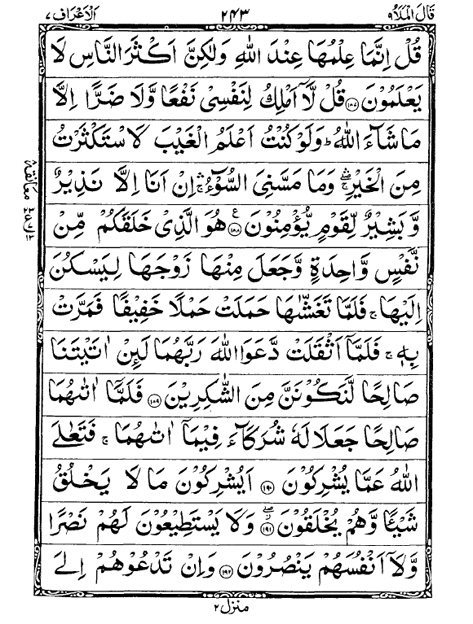 قَالَ الْمَلَاُ ٩ ٢٤٣ اَلْاَعْرَاف ٧
قُلْ اِنَّمَا عِلْمُهَا عِنْدَ اللّٰهِ وَلٰكِنَّ اَكْثَرَ النَّاسِ لَا
يَعْلَمُوْنَ ﴿١٨٧﴾ قُلْ لَّاۤ اَمْلِكُ لِنَفْسِيْ نَفْعًا وَّلَا ضَرًّا اِلَّا
مَا شَآءَ اللّٰهُ ؕ وَلَوْ كُنْتُ اَعْلَمُ الْغَيْبَ لَاسْتَكْثَرْتُ
مِنَ الْخَيْرِ ۛۚ وَمَا مَسَّنِيَ السُّوْٓءُ ۛۚ اِنْ اَنَا اِلَّا نَذِيْرٌ
وَّبَشِيْرٌ لِّقَوْمٍ يُّؤْمِنُوْنَ ﴿١٨٨﴾ ع هُوَ الَّذِيْ خَلَقَكُمْ مِّنْ
نَّفْسٍ وَّاحِدَةٍ وَّجَعَلَ مِنْهَا زَوْجَهَا لِيَسْكُنَ
اِلَيْهَا ۚ فَلَمَّا تَغَشّٰىهَا حَمَلَتْ حَمْلًا خَفِيْفًا فَمَرَّتْ
بِهٖ ۚ فَلَمَّاۤ اَثْقَلَتْ دَّعَوَا اللّٰهَ رَبَّهُمَا لَئِنْ اٰتَيْتَنَا
صَالِحًا لَّنَكُوْنَنَّ مِنَ الشّٰكِرِيْنَ ﴿١٨٩﴾ فَلَمَّاۤ اٰتٰىهُمَا
صَالِحًا جَعَلَا لَهٗ شُرَكَآءَ فِيْمَاۤ اٰتٰىهُمَا ۚ فَتَعٰلَى
اللّٰهُ عَمَّا يُشْرِكُوْنَ ﴿١٩٠﴾ اَيُشْرِكُوْنَ مَا لَا يَخْلُقُ
شَيْـًٔا وَّهُمْ يُخْلَقُوْنَ ﴿١٩١﴾ وَلَا يَسْتَطِيْعُوْنَ لَهُمْ نَصْرًا
وَّلَاۤ اَنْفُسَهُمْ يَنْصُرُوْنَ ﴿١٩٢﴾ وَاِنْ تَدْعُوْهُمْ اِلَى
منزل ٢
معانقة